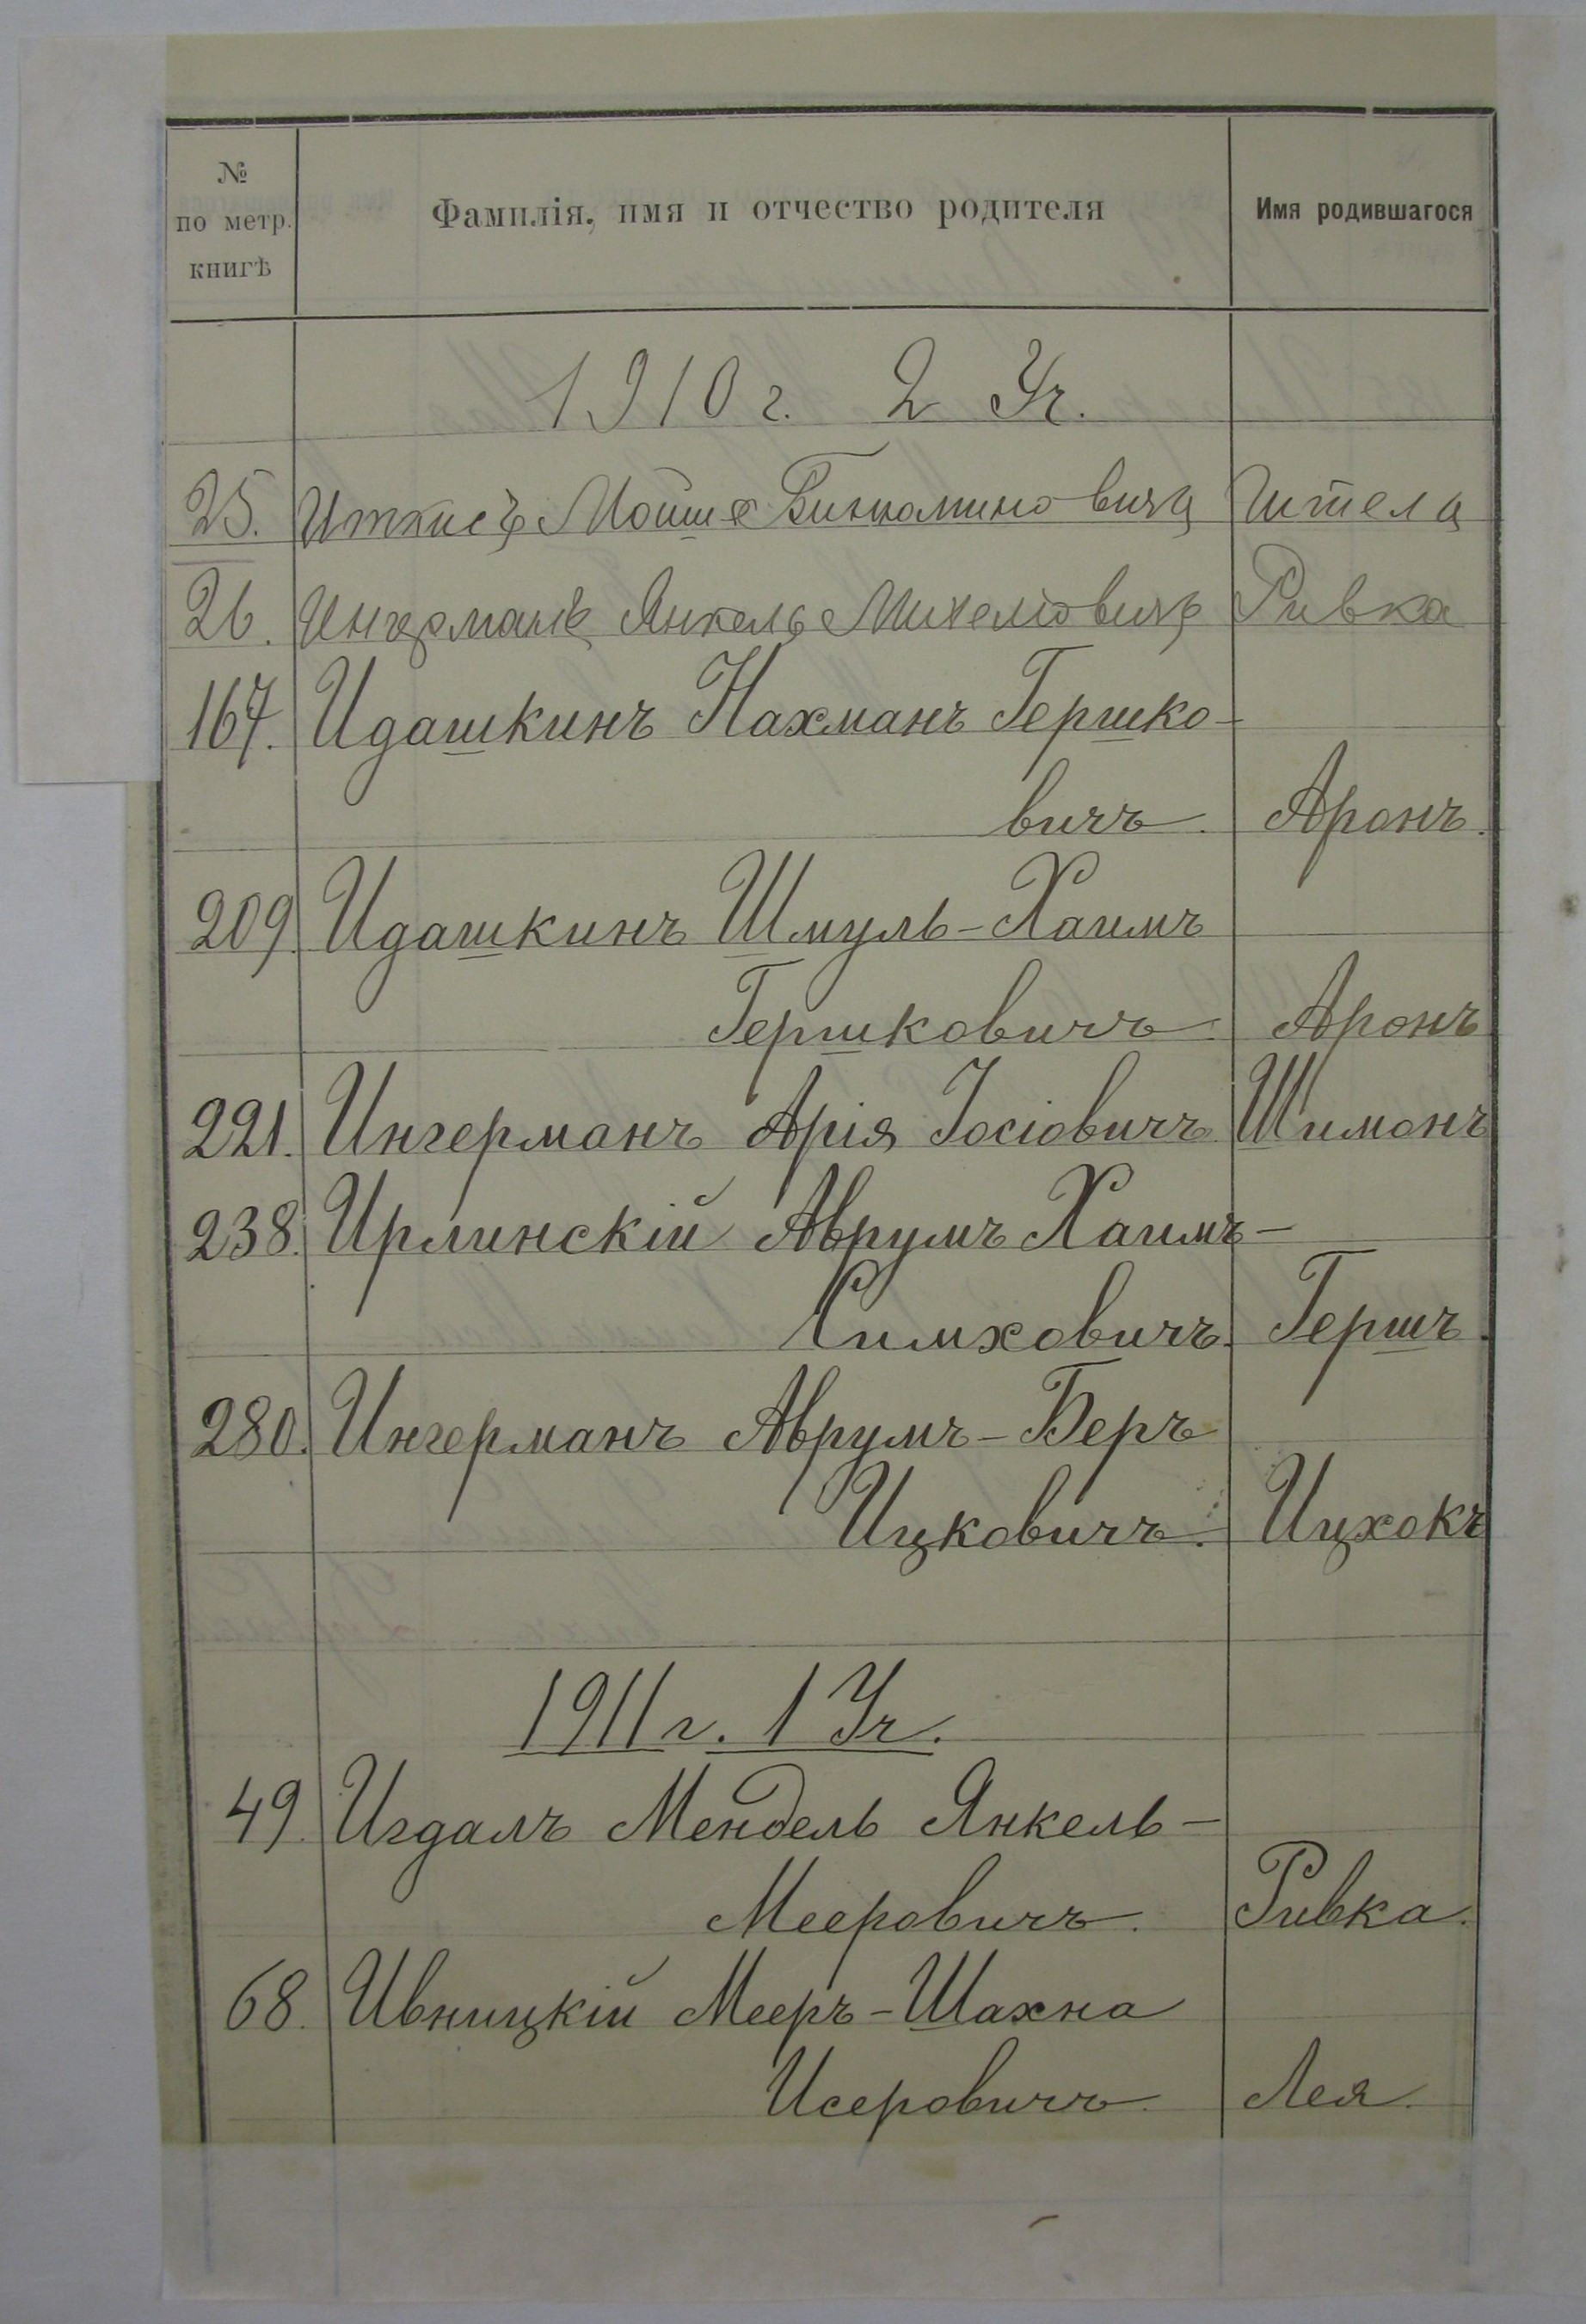 № по метр. книгѣ
Фамилія, имя и отчество родителя
Имя родившагося
1910 г. 2 Уч.
25. Иткисъ Мойше Биньоминовичъ Итела
26. Ингерманъ Янкель Михелiовичъ Ривка
167. Идашкинъ Нахманъ Гершко-
вичъ. Аронъ.
209. Идашкинъ Шмуль-Хаимъ
Гершковичъ. Аронъ
221. Ингерманъ Арія Іосіовичъ. Шимонъ
238. Ирлинскій Аврумъ Хаимъ-
Симховичъ. Гершъ.
280. Ингерманъ Аврумъ-Беръ
Ицковичъ. Ицхокъ
1911 г. 1 Уч.
49. Игдалъ Мендель Янкель-
Мееровичъ. Ривка.
68. Ивницкій Мееръ-Шахна
Исеровичъ. Лея.